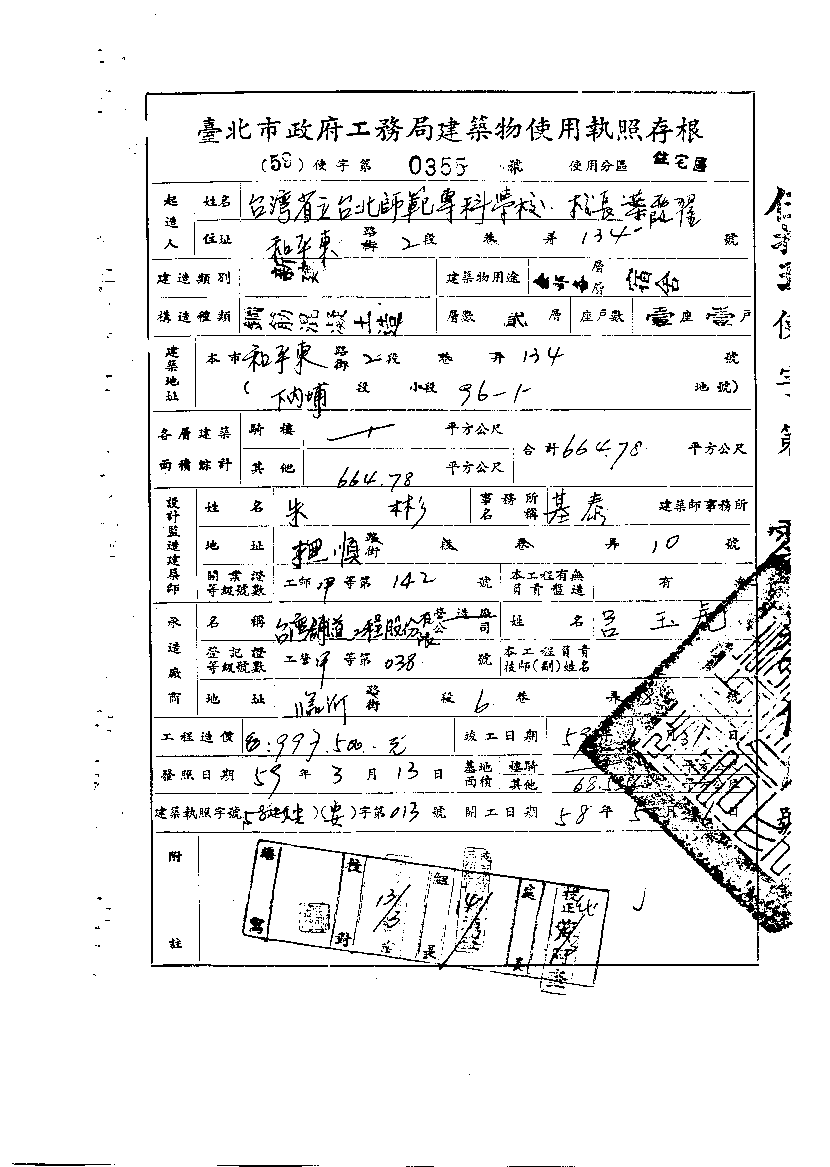 臺北市政府工務局建築物使用執照存根
(59)使字第 0355 號 使用分區 住宅區
起造人 姓名 台湾省立台北師範專科學校 校長葉霞翟
住址 和平東 路街 2 段 巷 弄 134 號
建造類別 建築物用途 層 層 宿舍
構造種類 鋼筋混凝土造 層數 貳 層 座戶數 壹 座 壹 戶
建築地址 本市 和平東 路街 2 段 巷 弄 134 號
(下內埔 段 小段 96-1 地號)
各層建築面積綜計 騎樓 平方公尺 合計 664.78 平方公尺
其他 664.78 平方公尺
設計監造建築師 姓名 朱彬 事務所名稱 基泰 建築師事務所
地址 順 路街 段 巷 弄 10 號
開業證等級號數 工師 甲 等第 142 號 本工程有無負責監造 有
承造廠商 名稱 台湾鋪道工程股份有限 營造廠公司 姓名 呂玉
登記證等級號數 工營 甲 等第 038 號 本工程負責技師(副)姓名
地址 臨沂 路街 段 6 巷 弄 號
工程造價 997,500.元 竣工日期 59 年 月 31 日
發照日期 59 年 3 月 13 日 基地面積 騎樓 平方公尺
其他 68.5
建築執照字號 58建 (安)字第 013 號 開工日期 58 年 5 月 日
附註
繕寫 校對 13/3 組長 14/3
使字第
號